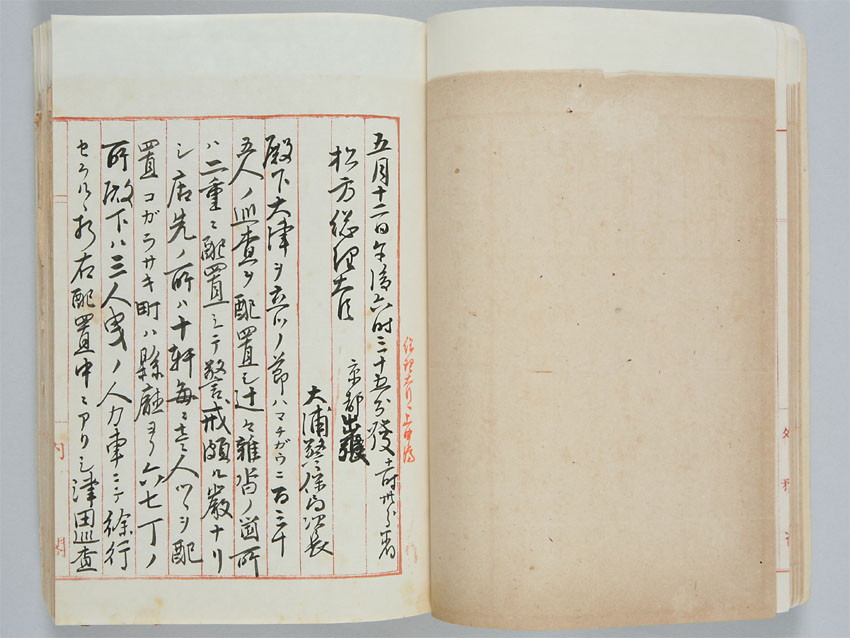 総理大臣ニ上申済
五月十二日午後六時三十五分発
松方総理大臣
京都出張
大浦警保局次長
殿下大津ヲ立ツノ節ハマチガウニ百三十
五人ノ巡査ヲ配置シ辻々雑沓ノ箇所
ハ二重ニ配置シテ警戒頗ル厳ナリ
シ店先ノ所ハ十軒毎ニ壱人ツヽヲ配
置コガラサキ町ハ縣廳ヨリ六七丁ノ
所殿下ハ三人曳ノ人力車ニテ徐行
セラルヽ折右配置中ニアリシ津田巡査
内閣